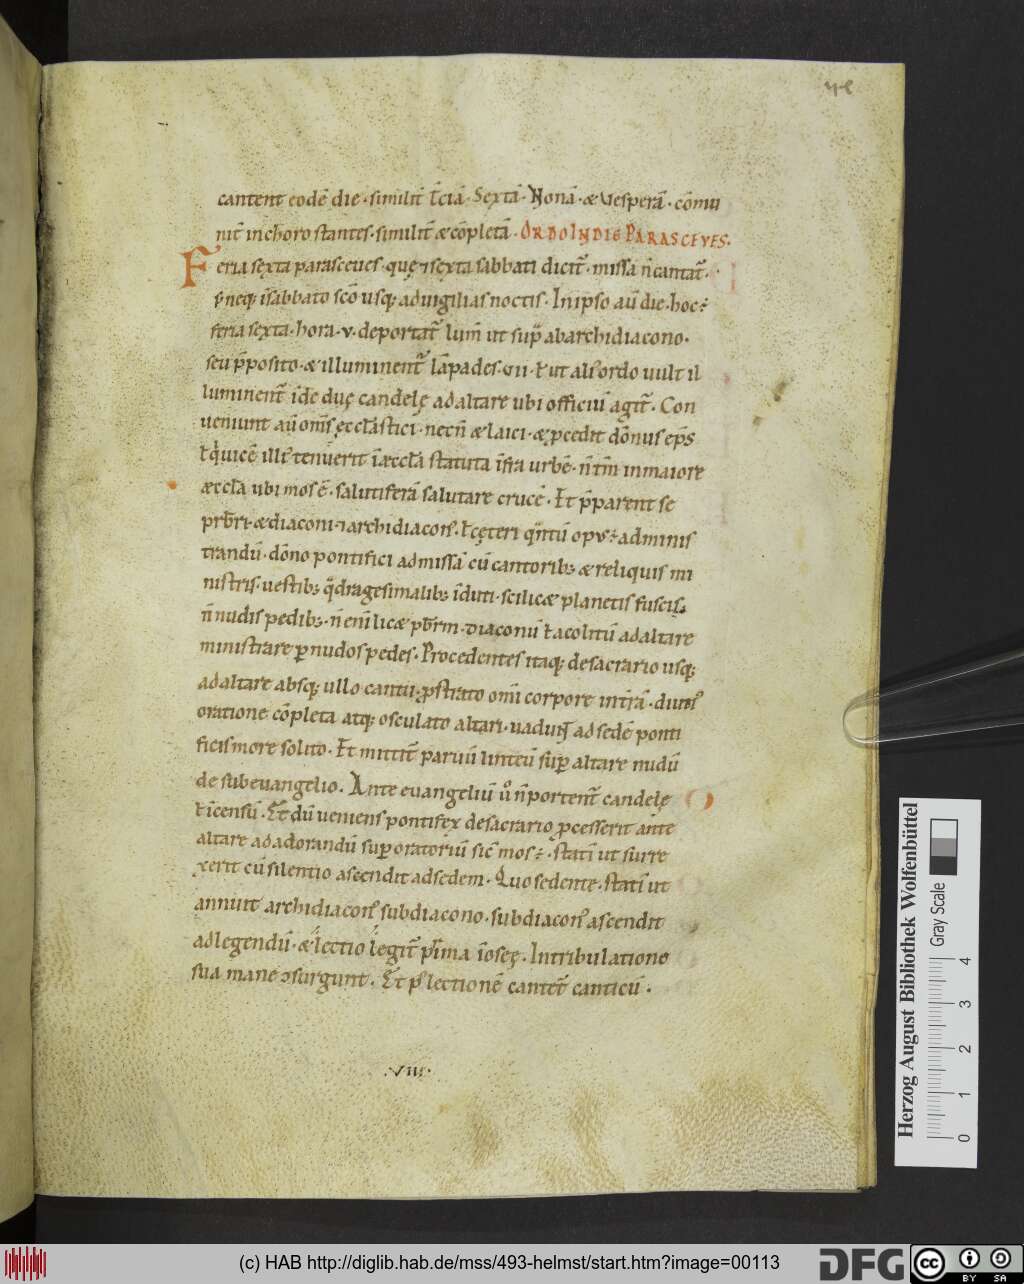 cantent eodē die · similiť t̄ciā · Sextā · Nonā · & Vesperā · cōmu
nit in choro stantes · similiť & cōpletā · ORDO IN DIE PARASCEVES.
Feria sęxta parasceues · quę ⁊ sęxta sabbati dicit᷑ · missa n̄ cantat᷑ ·
neq; ī sabbato scō usq; ad uigilias noctis · In ipso aū die · hoc ÷
feria sęxta · hora · v · deportat᷑ lum̄ ut sup̄ ab archidiacono ·
seu p̄posito · & illuminent᷑ lāpades · VII · ł ut alii ordo uult il
luminent᷑ īde duę candelę ad altare ubi officiū agit᷑ · Con
ueniunt aū om̄s ęcclāstici · necn̄ & laici · & p̄cedit dōnus ep̄s
ł q̇ uicē illi᷒ tenuerit ī æcclā statuta īfra urbē · n̄ tm̄ in maiore
æcclā ubi mos ē · salutiferā salutare crucē · Et p̄parent se
prb̄ri · & diaconi · ⁊ archidiacon᷒ · ł cęteri q̄ntū op᷒ ÷ adminis
trandū · dōno pontifici ad missā cū cantorib; & reliquis mi
nistris · uestib; q̄dragesimalib; īduti · scilic& planetis fuscis
n̄ nudis pedib; · n̄ enī lic& pb̄rm · diaconū ł acolitū ad altare
ministrare ꝑ nudos pedes · Procedentes itaq; de sacrario usq;
ad altare absq; ullo cantu · ꝓstrato omī corpore in tr̄ā · diuti᷒
oratione cōpleta atq; osculato altari · uadunt ad sedē ponti
ficis more solito · Et mittit᷑ paruū linteū suꝑ altare nudū
de sub euangelio · Ante euangeliū ů n̄ portent᷑ candelę
ł incensū · Et dū ueniens pontifex de sacrario ꝓcesserit ante
altare ad adorandū suꝑ oratoriū sic̄ mos ÷ · statī ut surre
xerit cū silentio ascendit ad sedem · Quo sedente · statī ut
annuit archidiacon᷒ subdiacono · subdiacon᷒ ascendit
ad legendū · & lectio legit᷑ p̄ma ī oseę · In tribulatione
sua mane ↄsurgunt · Et p᷒ lectionē cantet᷑ canticū ·
· VIII ·
Herzog August Bibliothek Wolfenbüttel
Gray Scale
0 1 2 3 4
(c) HAB http://diglib.hab.de/mss/493-helmst/start.htm?image=00113
DFG
cc BY SA